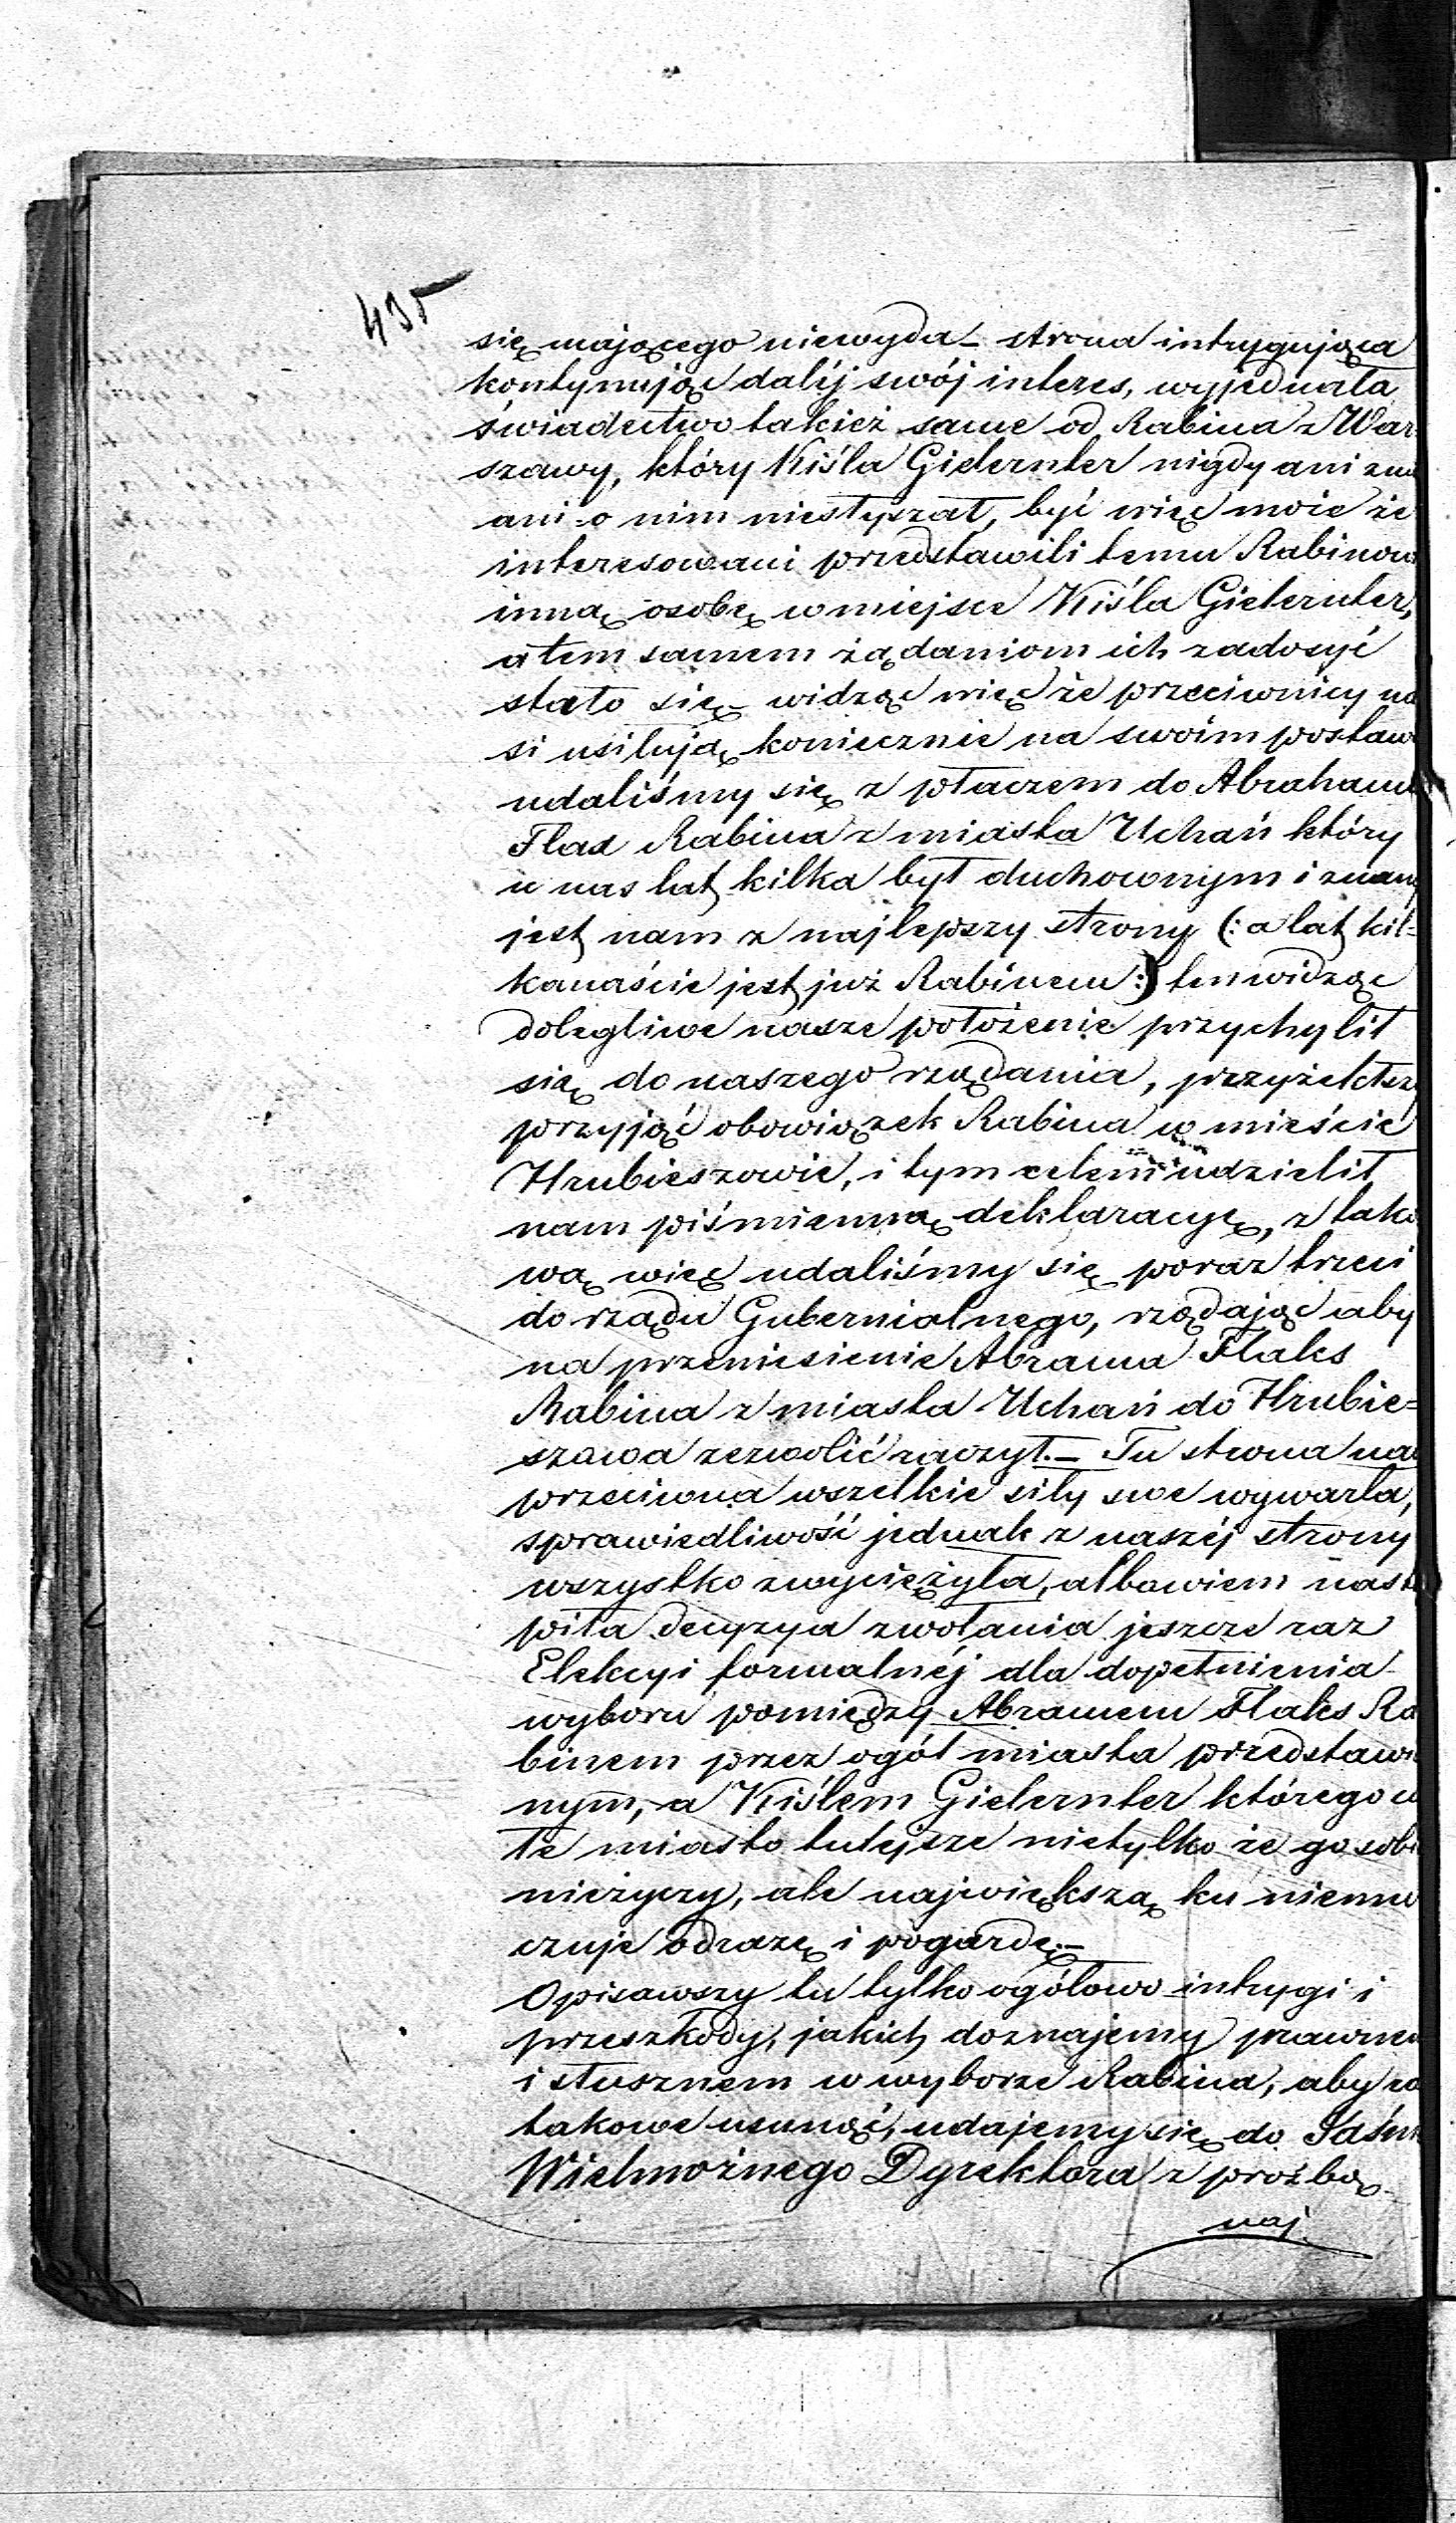 435
się mającego niewyda – strona intrygująca
kontynując daléj swój interes, wyjednała
świadectwo takież same od Rabina z War-
szawy, który Kiśla Gielernter nigdy ani zna
ani o nim niesłyszał, być więc może że
interesowani przedstawili temu Rabinow
inną osobę w miejsce Kiśla Gielernter,
a tem samem żądaniom ich zadosyć
stało się – widząc więc że przeciwnicy na
si usilują koniecznie na swoim postaw
udaliśmy się z płaczem do Abrahama
Flax Rabina z miasta Uchań który
u nas lat kilka był duchownym i znany
jest nam z najlepszy strony (: a lat kil-
kanaście jest już Rabinem :) ten widząc
dolegliwe nasze położenie przychylił
się do naszego rządania, przyżekłszy
przyjąć obowiązek Rabina w mieście
Hrubieszowie, i tym celem udzielił
nam piśmienną deklaracyę, z tako
wą więc udaliśmy się poraz trzeci
do rządu Gubernialnego, rządając aby
na przeniesienie Abrama Flaks
Rabina z miasta Uchań do Hrubie=
szowa zezwolić raczył. – Tu strona nam
przeciwna wszelkie siły swe wywarła,
sprawiedliwość jednak z naszéj strony
wszystko zwyciężyła, albowiem nastą
piła decyzya zwołania jeszcze raz
Elekcyi formalnéj dla dopełnienia
wyboru pomiędzy Abramem Flaks Ra
binem przez ogół miasta przedstawio
nym, a Kiślem Gielernter którego ca
łe miasto tutejsze nietylko że go sobie
nieżyczy, ale największą ku niemu
czuje odrazę i pogardę. –
Opisawszy tu tylko ogółowo intrygi i
przeszkody, jakich doznajemy prawnem
i słusznem w wyborze Rabina, aby za
takowe usunąć, udajemy się do Jaśnie
Wielmożnego Dyrektora z proźbą
naj